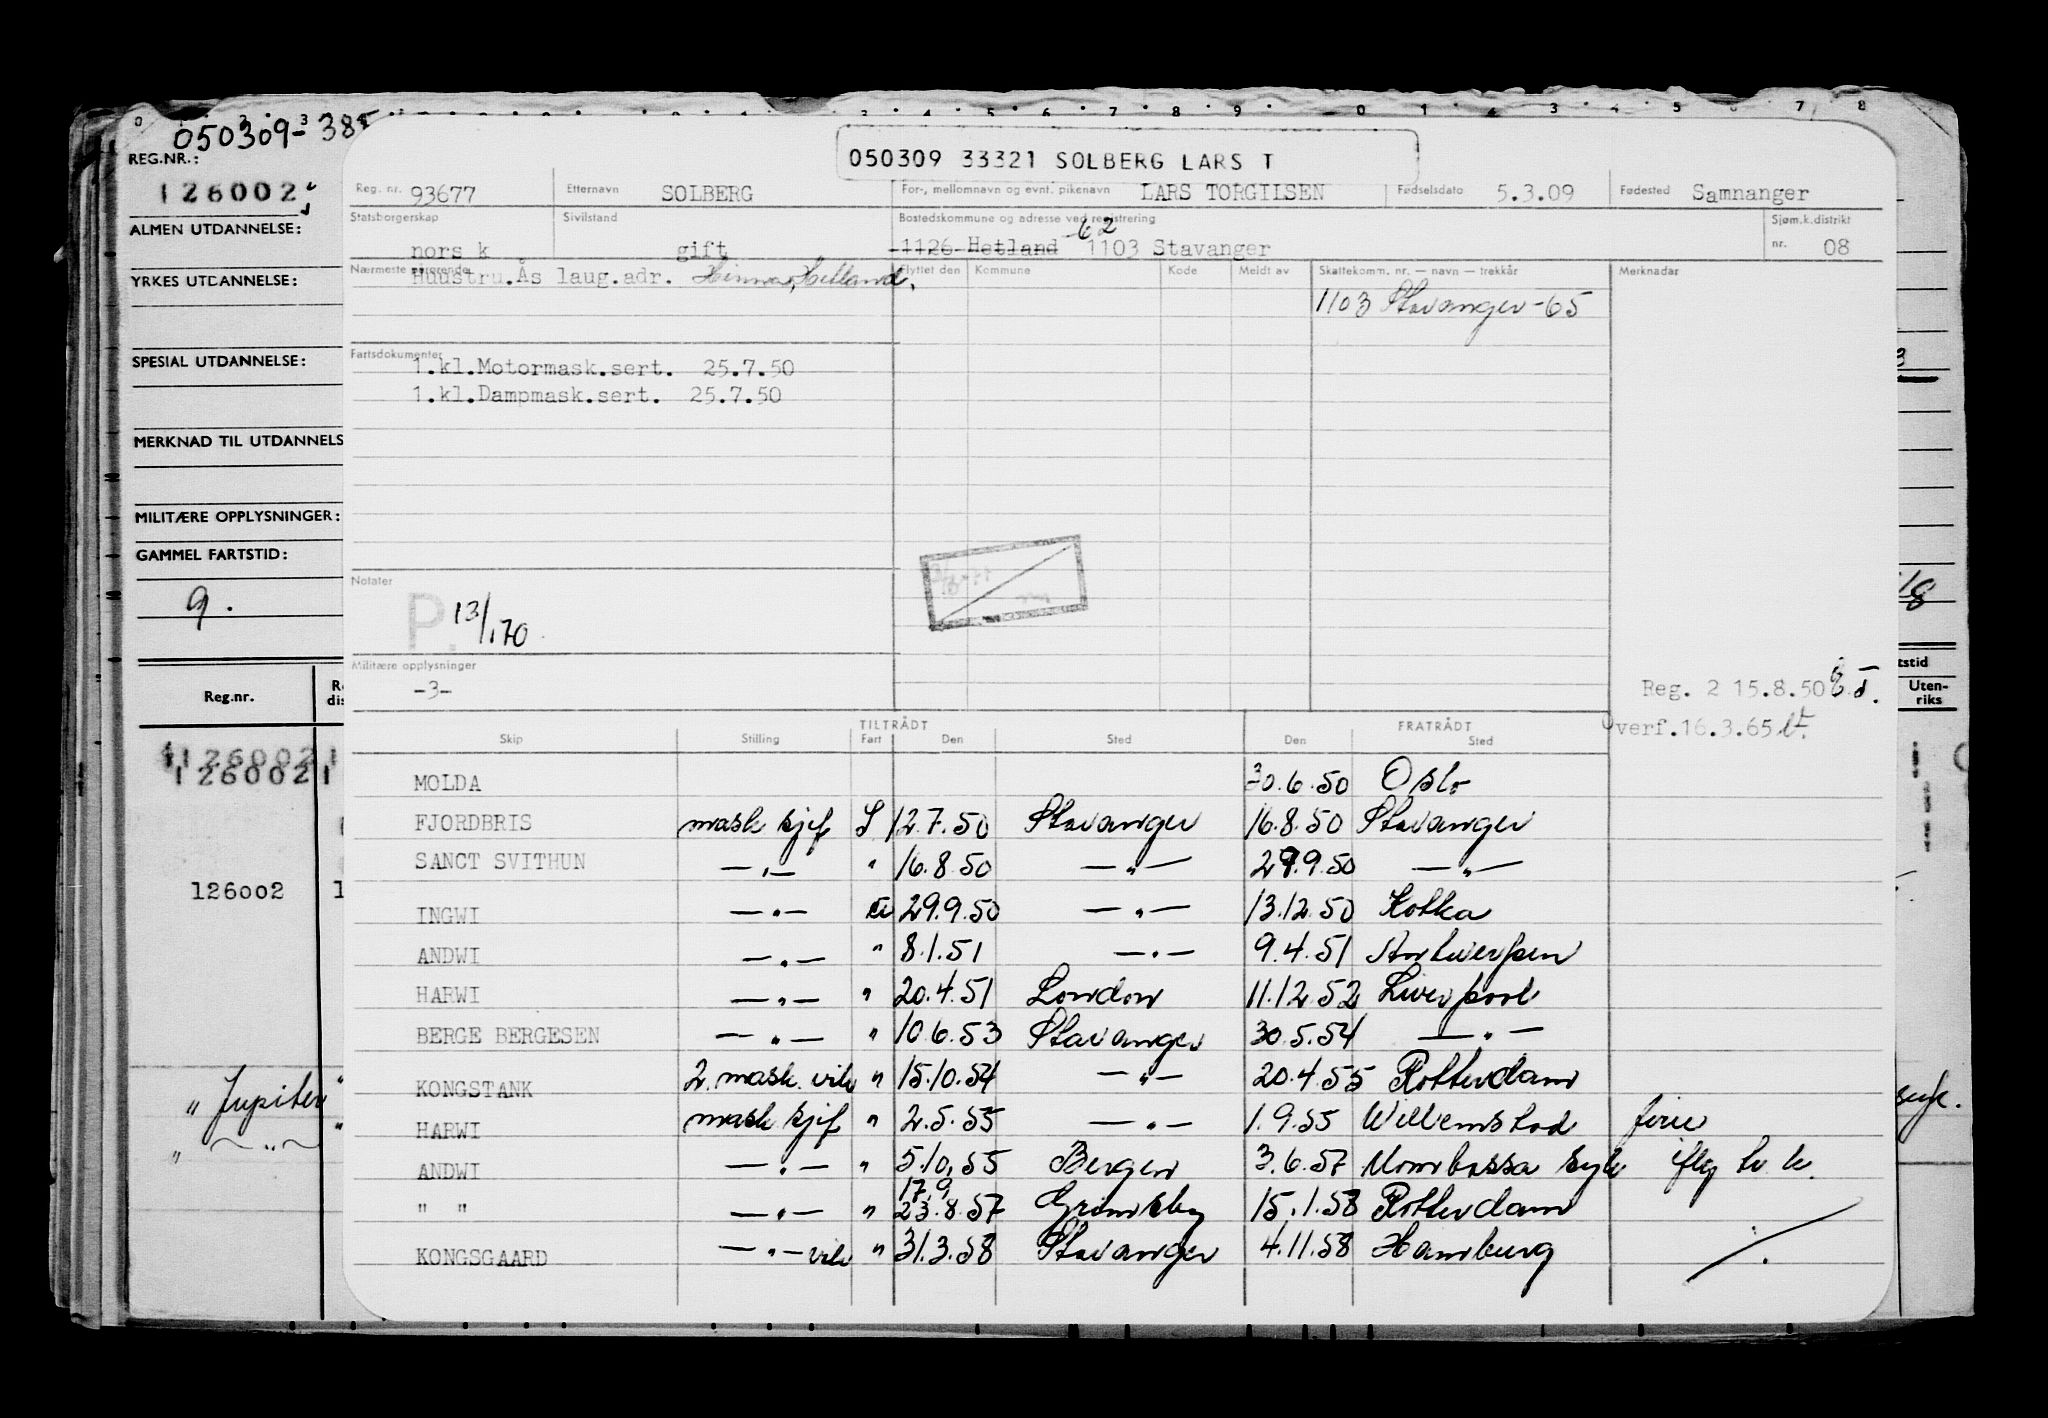 050309-385
REG.NR.:
126002
ALMEN UTDANNELSE:
YRKES UTDANNELSE:
SPESIAL UTDANNELSE:
MERKNAD TIL UTDANNELS
MILITÆRE OPPLYSNINGER:
GAMMEL FARTSTID:
9.
Reg.nr.
126002
126002 1
126002 1
" Jupiter "
" — " — "
050309 33321 SOLBERG LARS T
Reg. nr. 93677 Etternavn SOLBERG For-, mellomnavn og evnt. pikenavn LARS TORGILSEN Fødselsdato 5.3.09 Fødested Samnanger
Statsborgerskap Sivilstand Bostedskommune og adresse ved registrering Sjøm.k.distrikt
-62
norsk gift 1126 Hetland 1103 Stavanger nr. 08
Nærmeste pårørende Flyttet den Kommune Kode Meldt av Skattekomm. nr. — navn — trekkår Merknader
Huustru.Ås laug.adr. Hinna, Hetland.
1103 Stavanger -65
Fartsdokumenter
1.kl.Motormask.sert. 25.7.50
1.kl.Dampmask.sert. 25.7.50
Notater
P. 13/1.70
Militære opplysninger
-3-
Reg. 2 15.8.50
Overf.16.3.65
TILTRÅDT FRATRÅDT
Skip Stilling Fart Den Sted Den Sted
MOLDA 30.6.50 Oslo
FJORDBRIS mask sjef S 12.7.50 Stavanger 16.8.50 Stavanger
SANCT SVITHUN — " — " 16.8.50 — " — 29.9.50 — " —
INGWI — " — 29.9.50 — " — 13.12.50 Kotka
ANDWI — " — " 8.1.51 — " — 9.4.51 Antwerpen
HARWI — " — " 20.4.51 London 11.12.52 Liverpool
BERGE BERGESEN — " — " 10.6.53 Stavanger 30.5.54 — " —
KONGSTANK 2. mask. vik " 15.10.54 — " — 20.4.55 Rotterdam
HARWI mask sjef " 2.5.55 — " — 1.9.55 Willemstad ferie
ANDWI — " — " 5.10.55 Bergen 3.6.57 Mombassa syk iflg tv. k.
17.9.
" " — " — " 23.8.57 Grimsby 15.1.58 Rotterdam
KONGSGAARD — " — vik " 31.3.58 Stavanger 4.11.58 Hamburg
tstid
Uten-
riks